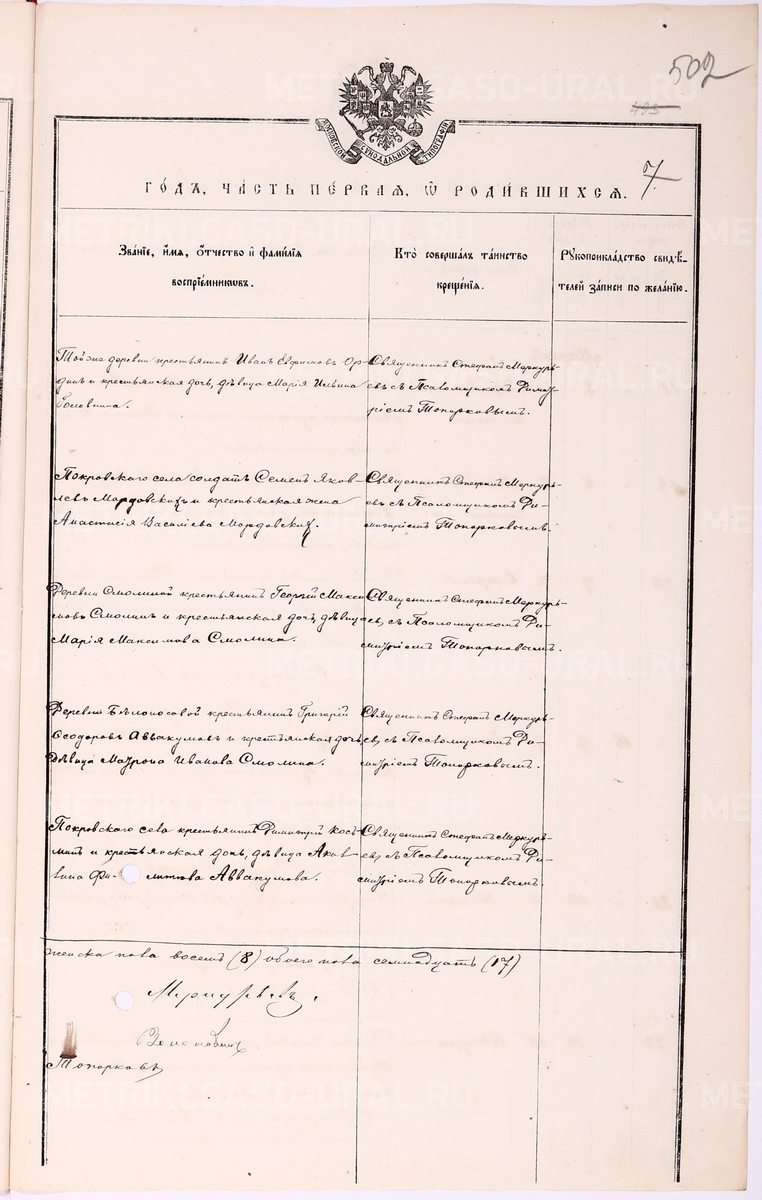 METRIKI.GASO-URAL.RU
502
493
МОСКОВСКОЙ СѴНОДАЛЬНОЙ ТИПОГРАФІИ
7
ГО́ДЪ, ЧА́СТЬ ПЕ́РВАЯ, Ѡ҆ РОДИ́ВШИХСЯ.
Зва́нїе, и҆́мя, ѻ҆́тчество и҆ фами́лїя
воспрїе́мниковъ.
Кто̀ соверша́лъ та́инство
креще́нїя.
Рꙋкоприкла́дство свидѣ́-
телей за́писи по жела́нїю.
Той же деревни крестьянинъ Иванъ Евфимовъ Ор-
донъ и крестьянская дочь, дѣвица Марія Ильина
Головина.
Священникъ Стефанъ Меркурь-
евъ съ Псаломщикомъ Димит-
ріемъ Топорковымъ.
Покровскаго села солдатъ Семенъ Яков-
левъ Мордовскихъ и крестьянская жена
Анастасія Василіева Мордовских.
Священникъ Стефанъ Меркурь-
евъ съ Псаломщикомъ Ди-
митріемъ Топорковымъ.
Деревни Смолиной крестьянинъ Георгій Макси-
мовъ Смолинъ и крестьянская дочь, дѣвица
Марія Максимова Смолина.
Священникъ Стефанъ Меркурь-
евъ, съ Псаломщикомъ Ди-
митріемъ Топорковымъ.
Деревни Бѣлоносовой крестьянинъ Григорій
Ѳеодоровъ Аввакумовъ и крестьянская дочь,
дѣвица Матрона Иванова Смолина.
Священникъ Стефанъ Меркурь-
евъ, съ Псаломщикомъ Ди-
митріемъ Топорковымъ.
Покровскаго села крестьянинъ Димитрій Кось-
минъ и крестьянская дочь, дѣвица Аки-
лина Фи- митова Аввакумова.
Священникъ Стефанъ Меркурь-
евъ, съ Псаломщикомъ Ди-
митріемъ Топорковымъ.
женска пола восемь (8) обоего пола семнадцать (17)
Меркурьевъ.
Топорковъ